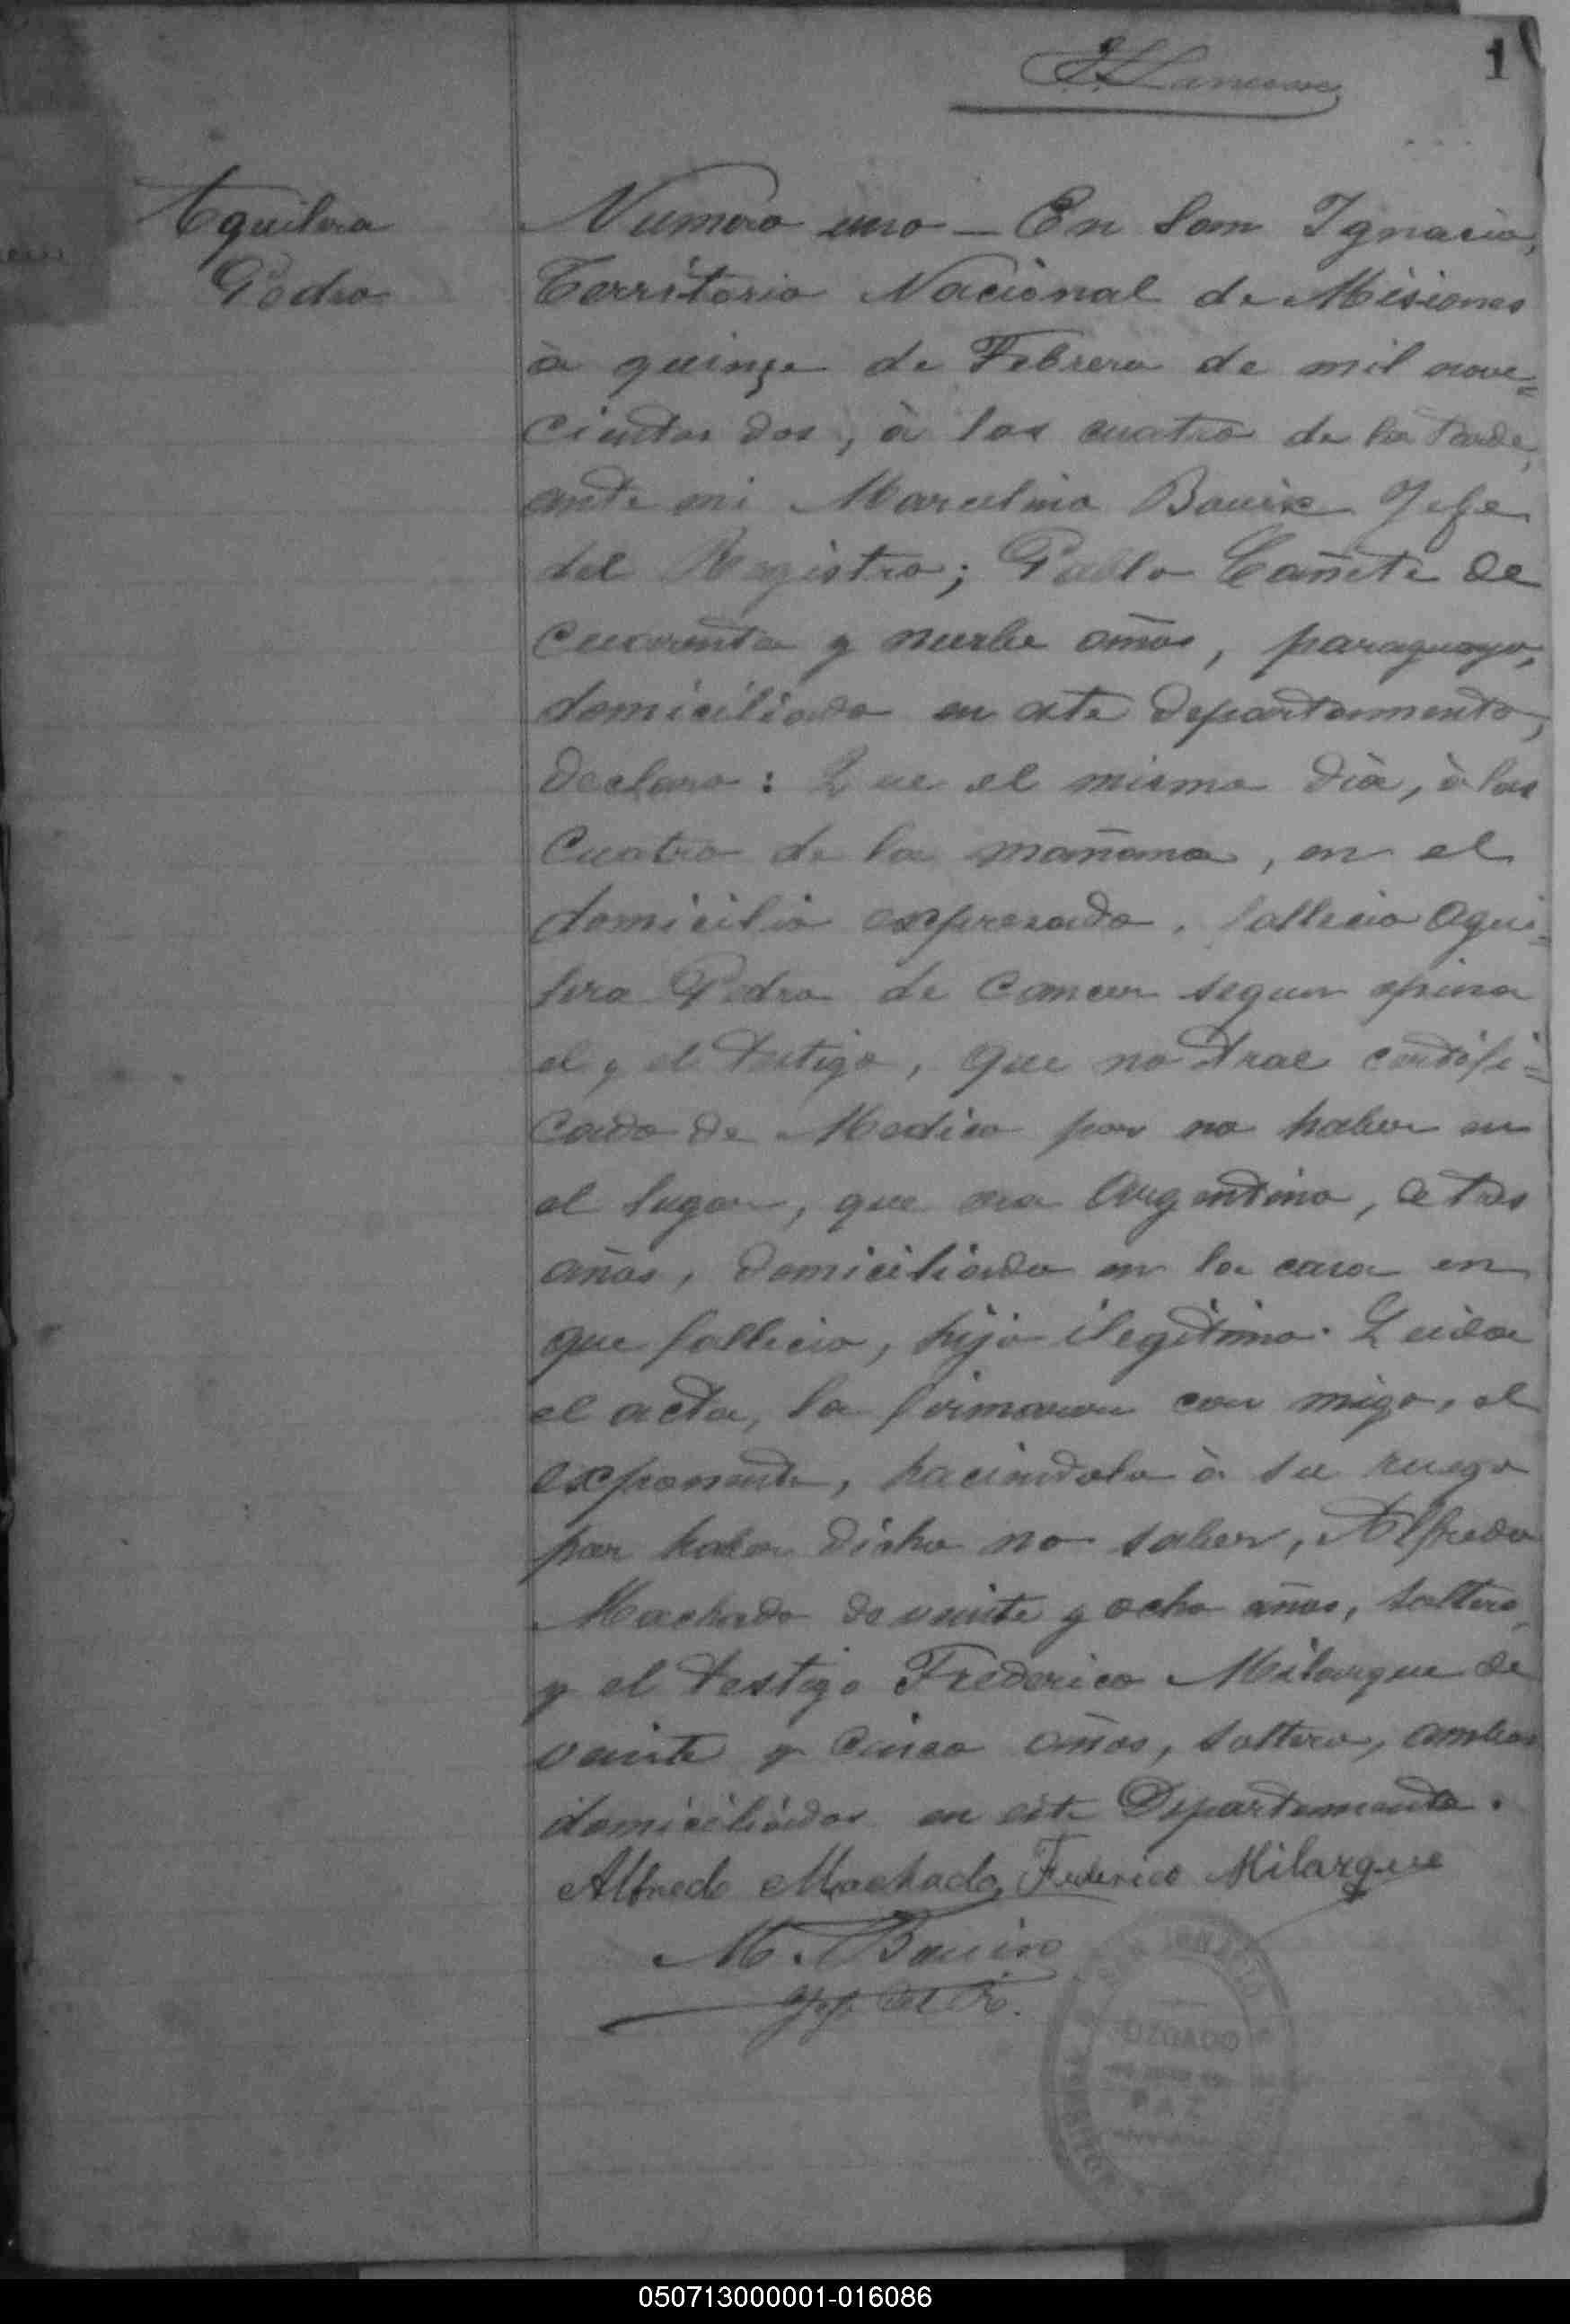 1
Aguilera
Pedro
Numero uno — En San Ignacio,
Territorio Nacional de Misiones
à quinze de Febrero de mil nove=
cientos dos, à las cuatro de la tarde,
ante mi Marcelino Bouix Jefe
del Registro; Pablo Cañete de
cuarenta y nuebe años, paraguayo,
domiciliado en este departamento,
declaro: Que el mismo dia, à las
cuatro de la mañana, en el
domicilio expresado, fallecio Agui-
lera Pedro de Cancer segun opina
el y el testigo, que no trae certifi=
cado de Medico por no haber en
el lugar, que era Argentino, de tres
años, domiciliado en la casa en
que fallecio, hijo ilegitimo. Leida
el acta, la firmaron con migo, el
exponente, haciendolo à su ruego
por haber dicho no saber, Alfredo
Machado de veinte y ocho años, soltero,
y el testigo Frederico Milarque de
veinte y cinco años, soltero, ambos
domiciliados en este Departamento.
Alfredo Machado Federico Milarque
M. Bouix
Jefe del R.
SAN IGNACIO
JUZGADO
PAZ
050713000001-016086